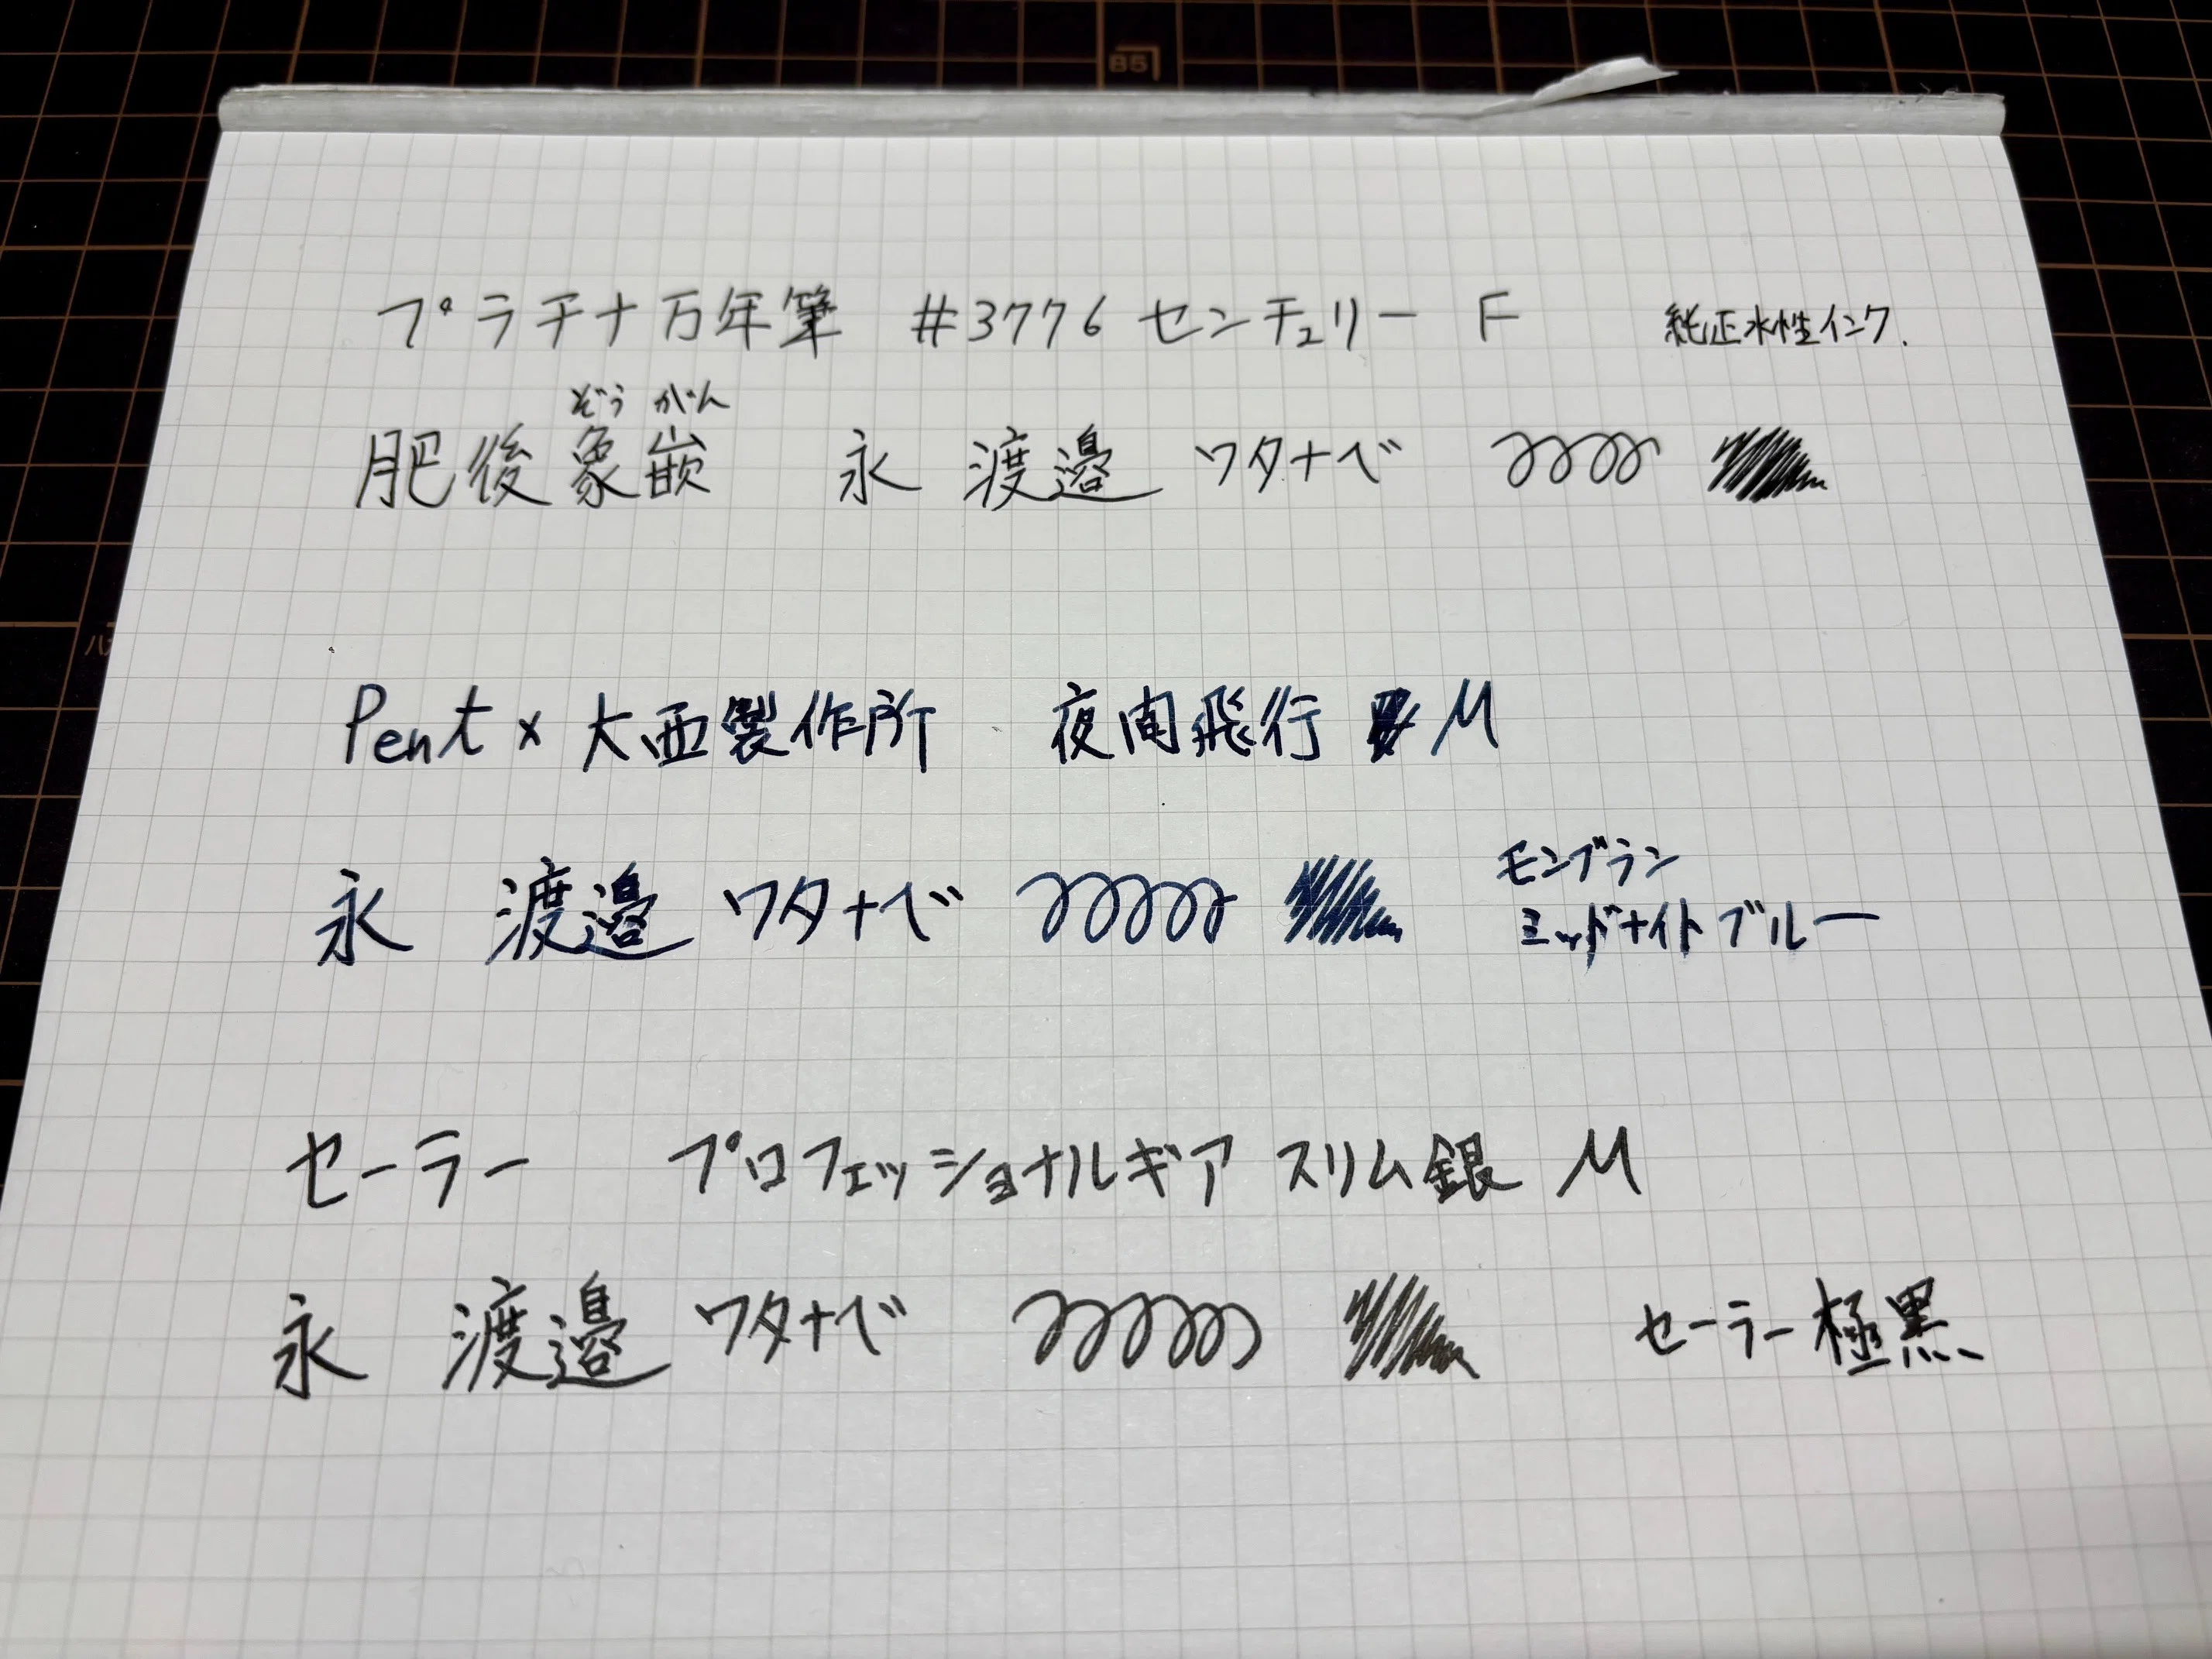 B5
プラチナ万年筆 #3776 センチュリー F 純正水性インク.
ぞうがん
肥後象嵌 永 渡邉 ワタナベ
Pent × 大西製作所 夜間飛行 M
永 渡邉 ワタナベ
モンブラン
ミッドナイトブルー
セーラー プロフェッショナルギア スリム銀 M
永 渡邉 ワタナベ セーラー極黒